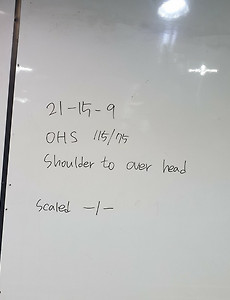 21-15-9
OHS 115/75
Shoulder to over head
Scaled -/-